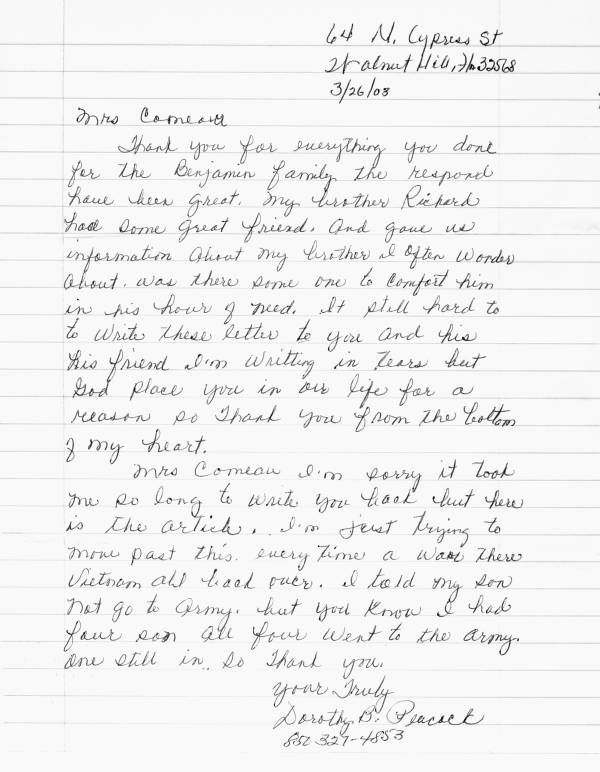 64 N. Cypress St
Walnut Hill, Fla 32568
3/26/03
Mrs Comeau
Thank you for everything you done
for the Benjamin family the respond
have been great. My brother Richard
had some great friend. And gave us
information about my brother I often wonder
about. was there some one to comfort him
in his hour of need. It still hard to
to write these letter to you and his
his friend I'm writting in tears but
God place you in our life for a
reason so Thank you from the bottom
of my heart.
Mrs Comeau I'm sorry it took
me so long to write you back but here
is the article. I'm just trying to
move past this. every time a war there
Vietnam all back over. I told my son
not go to Army. but you know I had
four son all four went to the army.
one still in. so Thank you.
Your Truly
Dorothy B. Peacock
850 327-4853